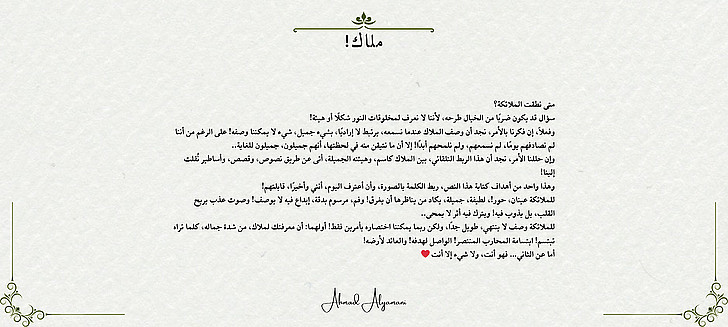 ملاك!
متى نطقت الملائكة؟
سؤال قد يكون ضربًا من الخيال طرحه، لأننا لا نعرف لمخلوقات النور شكلًا أو هيئة!
وفعلًا، إن فكرنا بالأمر، نجد أن وصف الملاك عندما نسمعه، يرتبط لا إراديًا، بشيء جميل، شيء لا يمكننا وصفه! على الرغم من أننا
لم نصادفهم يومًا، لم نسمعهم، ولم نلمحهم أبدًا! إلا أن ما نتيقن منه في لحظتها، أنهم جميلون، جميلون للغاية..
وإن حللنا الأمر، نجد أن هذا الربط التلقائي، بين الملاك كاسم، وهيئته الجميلة، أتى عن طريق نصوص، وقصص، وأساطير نُقلت
إلينا!
وهذا واحد من أهداف كتابة هذا النص، ربط الكلمة بالصورة، وأن أعترف اليوم، أنني وأخيرًا، قابلتهم!
للملائكة عينان، حور! لطيفة، جميلة، يكاد من يناظرها أن يغرق! وفم، مرسوم بدقة، إبداع فيه لا يوصف! وصوت عذب يريح
القلب، بل يذوب فيه! ويترك فيه أثر لا يمحى..
للملائكة وصف لا ينتهي، طويل جدًا، ولكن ربما يمكننا اختصاره بأمرين فقط! أولهما: أن معرفتك لملاك، من شدة جماله، كلما تراه
تبتسم! ابتسامة المحارب المنتصر! الواصل لهدفه! والعائد لأرضه!
أما عن الثاني... فهو أنت، ولا شيء إلا أنت❤
Ahmad Alyamani